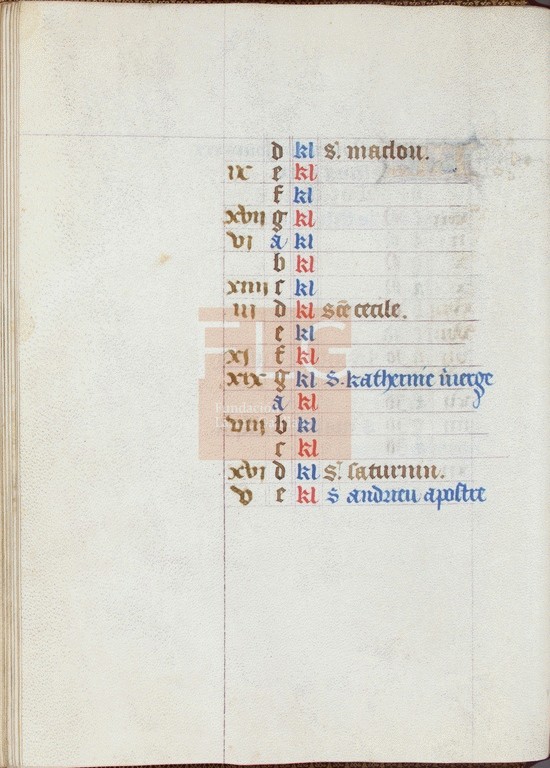 d kl S'. maclou.
ix e kl
f kl
xvij g kl
vj a kl
b kl
xiiij c kl
iij d kl Sce cecile.
e kl
xj f kl
xix g kl S. katherine vierge
a kl
viij b kl
c kl
xvj d kl S'. saturnin.
v e kl S andrieu apostre
FLG
Fundación